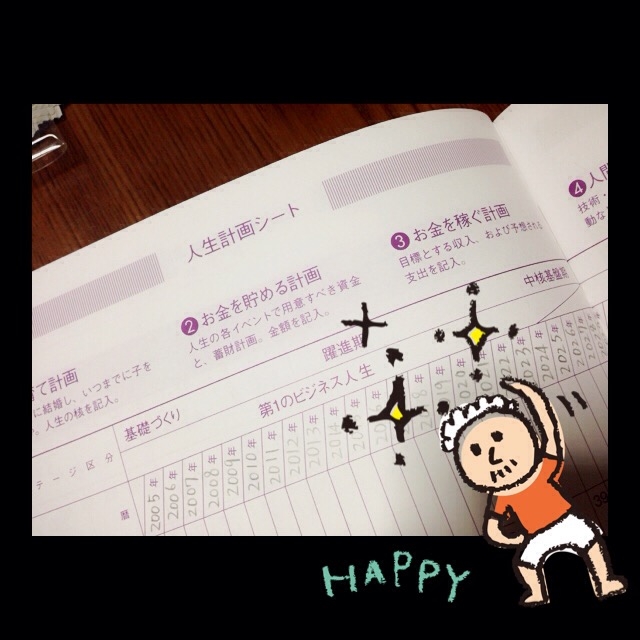 人生計画シート
て計画
に結婚し、いつまでに子を
人生の核を記入。
❷お金を貯める計画
人生の各イベントで用意すべき資金
と、蓄財計画。金額を記入。
❸お金を稼ぐ計画
目標とする収入、および予想される
支出を記入。
❹人間
技術・
動な
中核基盤期
躍進期
基礎づくり
第1のビジネス人生
テージ区分
暦
2005年
2006年
2007年
2008年
2009年
2010年
2011年
2012年
2013年
2023年
2024年
2025年
HAPPY